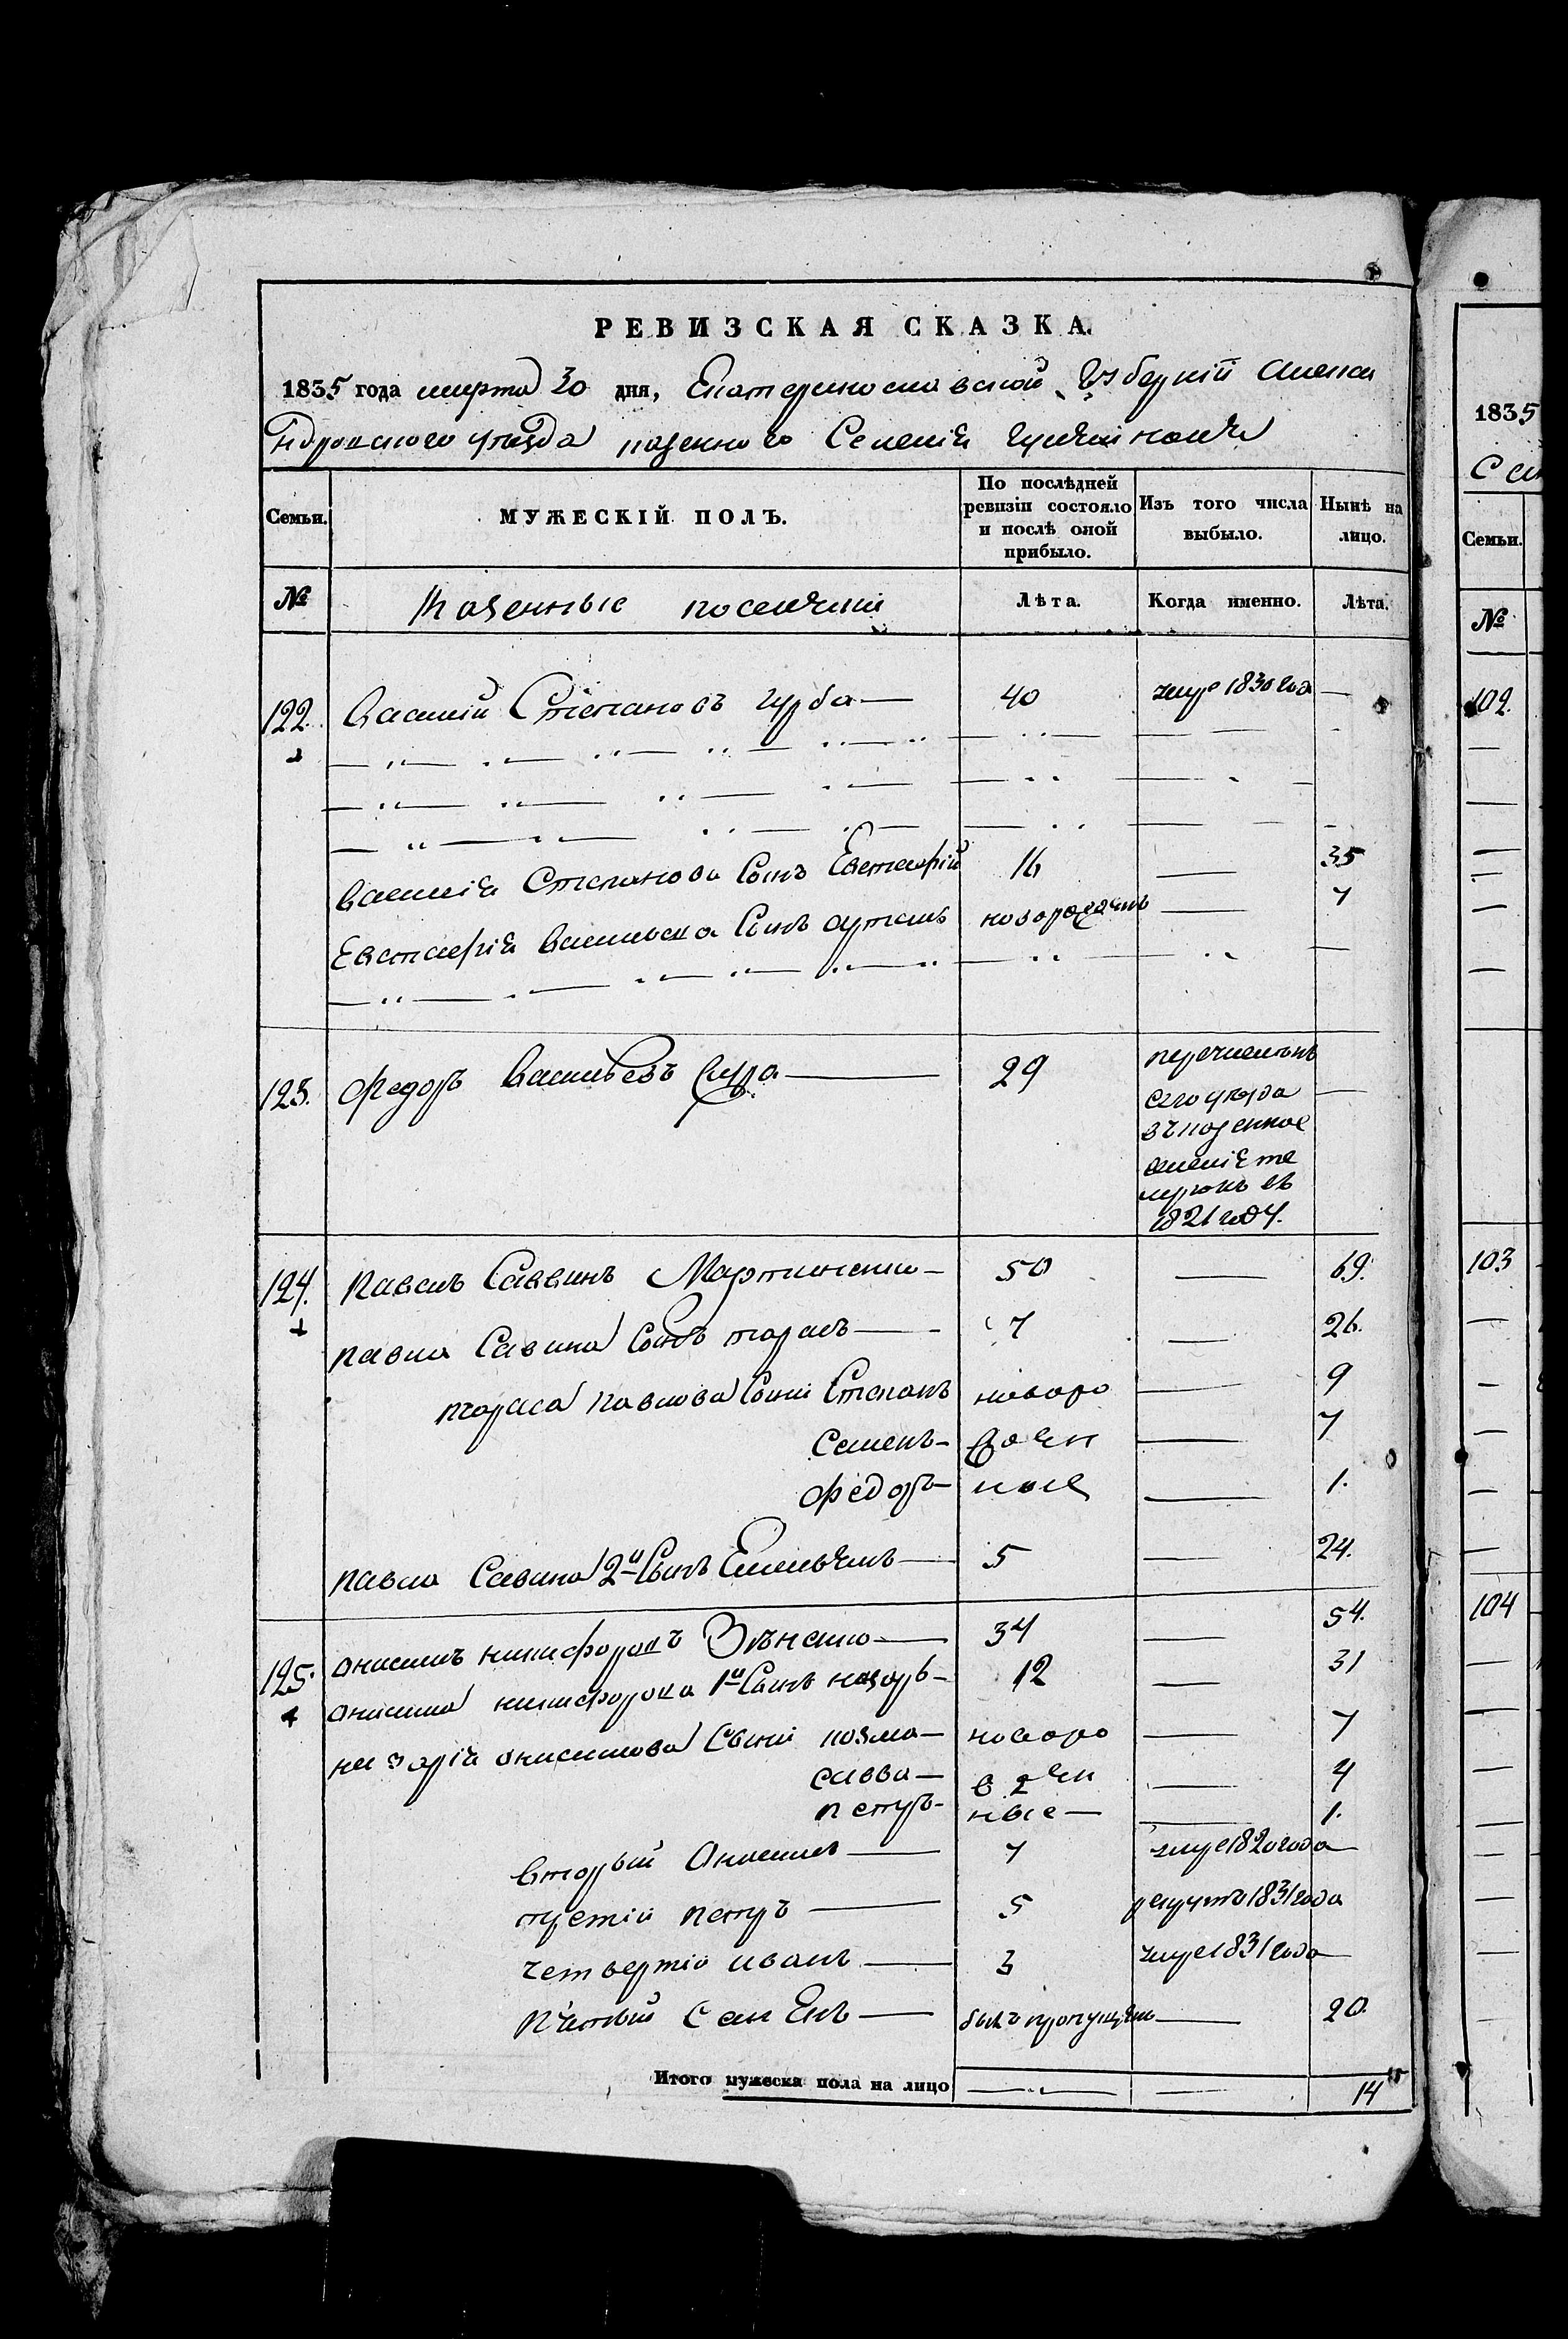 РЕВИЗСКАЯ СКАЗКА.
1835 года марта 30 дня, Екатеринославской Губерній Алекса
ндровского уѣзда казенного Селенія
Семьи. МУЖЕСКІЙ ПОЛЪ. По послѣдней ревизіи состояло и послѣ оной прибыло. Изъ того числа выбыло. Нынѣ на лицо.
№ Казенные поселяни Лѣта. Когда именно. Лѣта.
122. Василій Степановъ Цурба 40 умре 1830 года
Василія Степанова Сынъ Евстафій 16 — 35
Евстафія Васильева Сынъ Артемъ новорожденъ — 7
123. Федоръ Васильевъ 29 перечисленъ
сего уѣзда
въ казенное
селеніе
въ
1821 году.
124. Павелъ Саввинъ Мартиненко 50 — 69.
Павла Савина Сынъ Тарасъ 7 — 26.
Тараса Павлова Сыни Степанъ новоро — 9
Семенъ жден — 7
Федоръ ные — 1.
Павла Савина 2й Сынъ Емельянъ 5 — 24.
125. Онисимъ Никифоровъ Зѣнско 34 — 54.
Онисима Никифорова 1й Сынъ Назаръ 12 — 31
Назарія Онисимова Сыни Козма новоро — 7
Савва жден — 4
Петръ ные — 1.
Вторый Онисимъ 7 умре 1820 года
третій Петръ 5 рекрутъ 1831 года
четвертій Иванъ 3 умре 1831 года
Пятый был пропущенъ — 20.
Итого мужеска пола на лицо — — 14
1835
Семьи.
№
102.
103
104